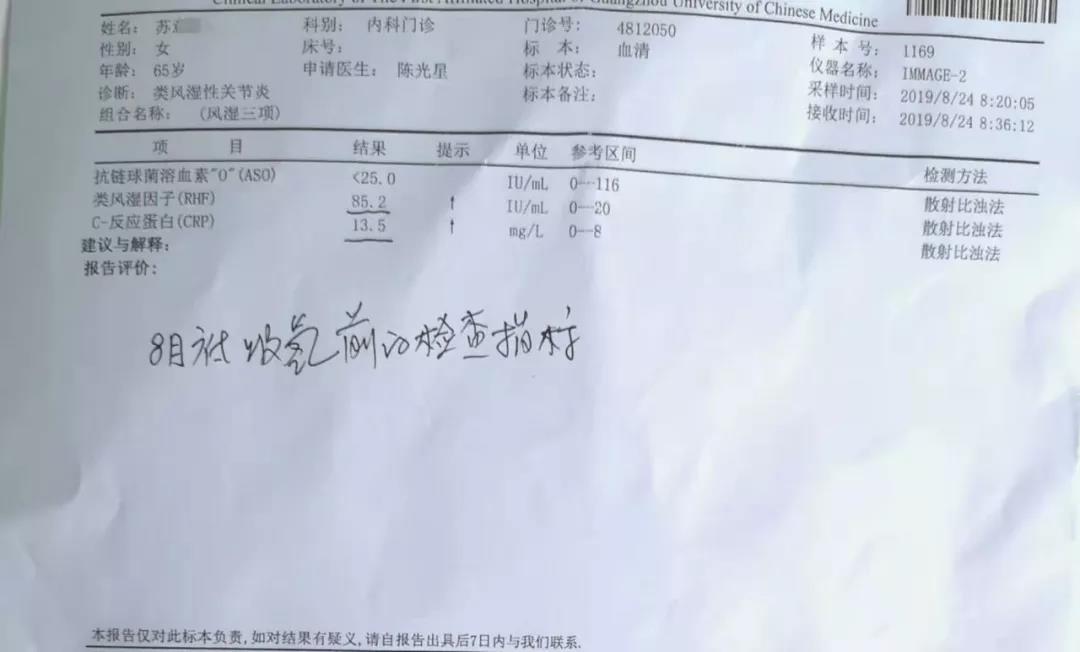 Clinical Laboratory of The First Affiliated Hospital of Guangzhou University of Chinese Medicine
姓名: 苏 科别: 内科门诊 门诊号: 4812050 样本号: 1169
性别: 女 床号: 标本: 血清 仪器名称: IMMAGE-2
年龄: 65岁 申请医生: 陈光星 标本状态: 采样时间: 2019/8/24 8:20:05
诊断: 类风湿性关节炎 标本备注: 接收时间: 2019/8/24 8:36:12
组合名称: (风湿三项)
项目 结果 提示 单位 参考区间 检测方法
抗链球菌溶血素"O"(ASO) <25.0 IU/mL 0--116 散射比浊法
类风湿因子(RHF) 85.2 ↑ IU/mL 0--20 散射比浊法
C-反应蛋白(CRP) 13.5 ↑ mg/L 0--8 散射比浊法
建议与解释:
报告评价:
8月 吸氢前的检查指标
本报告仅对此标本负责,如对结果有疑义,请自报告出具后7日内与我们联系.